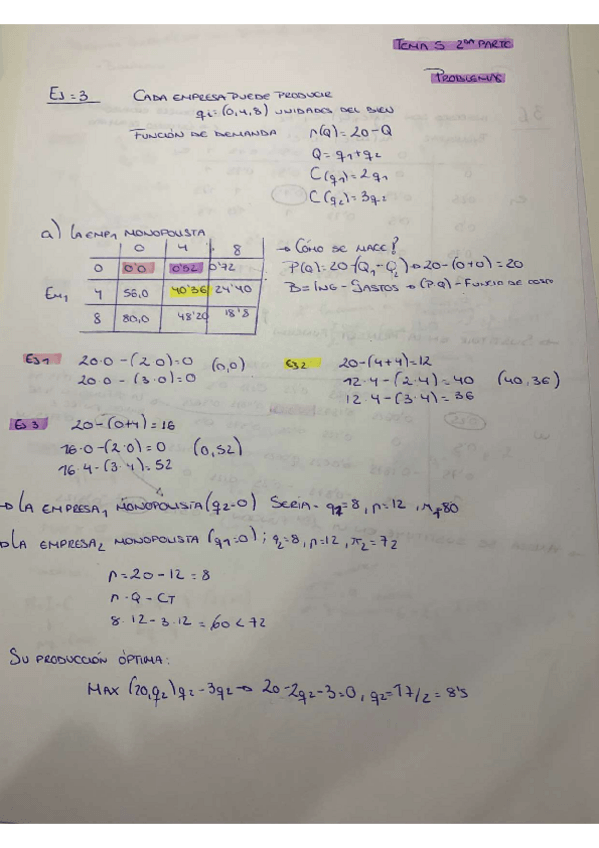 TEMA 5 2ª PARTE
PROBLEMAS
EJ=3 CADA EMPRESA PUEDE PRODUCIR
qi=(0,4,8) UNIDADES DEL BIEN
FUNCIÓN DE DEMANDA p(Q)=20-Q
Q=q1+q2
C(q1)=2q1
C(q2)=3q2
a) LA EMP1 MONOPOLISTA
0 4 8
0 0'0 0'52 0'72
EM1 4 56,0 40'36 24'40
8 80,0 48'20 18'8
→ CÓMO SE HACE?
P(Q)=20-(Q1-Q2)→20-(0+0)=20
B=ING-GASTOS→(P·Q)-FUNCIÓ DE COSTO
EJ1 20·0-(2·0)=0 (0,0)
20·0-(3·0)=0
EJ2 20-(4+4)=12
12·4-(2·4)=40 (40,36)
12·4-(3·4)=36
EJ3 20-(0+4)=16
16·0-(2·0)=0 (0,52)
16·4-(3·4)=52
→ LA EMPRESA1 MONOPOLISTA (q2=0) SERÍA q1=8, p=12, π1=80
→ LA EMPRESA2 MONOPOLISTA (q1=0); q2=8, p=12, π2=72
p=20-12=8
p·Q-CT
8·12-3·12=60<72
SU PRODUCCIÓN ÓPTIMA:
MAX (20,q2)q2-3q2→20-2q2-3=0, q2=17/2=8'5